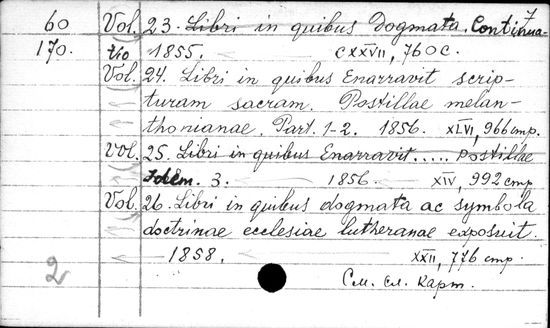 7
60 Vol. 23. Libri in quibus Dogmata. Continua-
170. tio 1855. CXXVII, 760 C.
Vol. 24. Libri in quibus Enarravit scrip-
turam sacram. Postillae melan-
thonianae. Part. 1-2. 1856. XLVI, 966 стр.
Vol. 25. Libri in quibus Enarravit..... Postillae
Idem. 3. 1856. XIV, 992 стр
Vol. 26. Libri in quibus dogmata ac symbola
doctrinae ecclesiae lutheranae exposuit.
1858. XXII, 776 стр.
2 См. сл. карт.